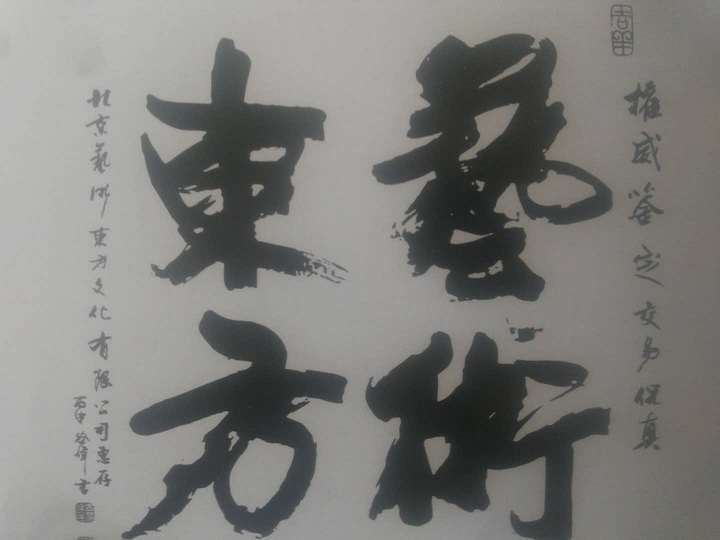 權威鉴定交易保真
藝術
東方
北京藝術東方文化有限公司惠存
丙申 偉书